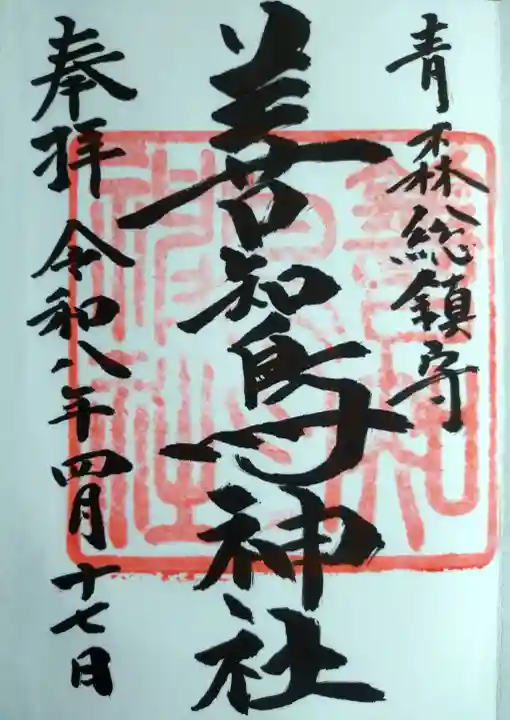 青森総鎮守
善知鳥神社
奉拝 令和八年四月十七日
善知鳥神社